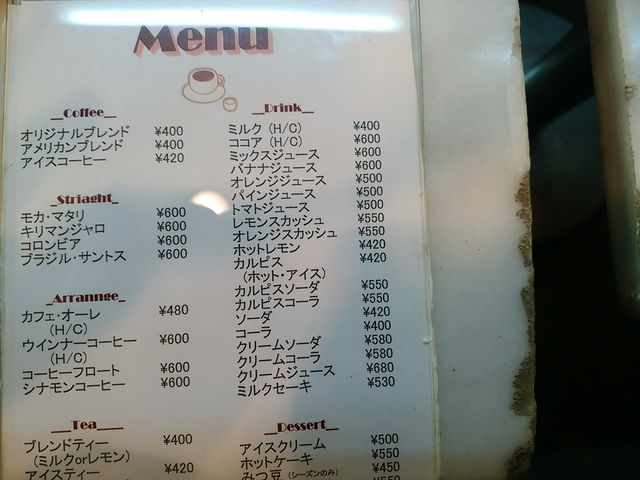 Menu
Coffee
オリジナルブレンド ¥400
アメリカンブレンド ¥400
アイスコーヒー ¥420
Striaght
モカ・マタリ ¥600
キリマンジャロ ¥600
コロンビア ¥600
ブラジル・サントス ¥600
Arrannge
カフェ・オーレ ¥480
(H/C)
ウインナーコーヒー ¥600
(H/C)
コーヒーフロート ¥600
シナモンコーヒー ¥600
Tea
ブレンドティー ¥400
(ミルクorレモン)
アイスティー ¥420
Drink
ミルク (H/C) ¥400
ココア (H/C) ¥600
ミックスジュース ¥600
バナナジュース ¥600
オレンジジュース ¥500
パインジュース ¥500
トマトジュース ¥500
レモンスカッシュ ¥550
オレンジスカッシュ ¥550
ホットレモン ¥420
カルピス ¥420
(ホット・アイス)
カルピスソーダ ¥550
カルピスコーラ ¥550
ソーダ ¥420
コーラ ¥400
クリームソーダ ¥580
クリームコーラ ¥580
クリームジュース ¥680
ミルクセーキ ¥530
Dessert
アイスクリーム ¥500
ホットケーキ ¥550
みつ豆 (シーズンのみ) ¥450